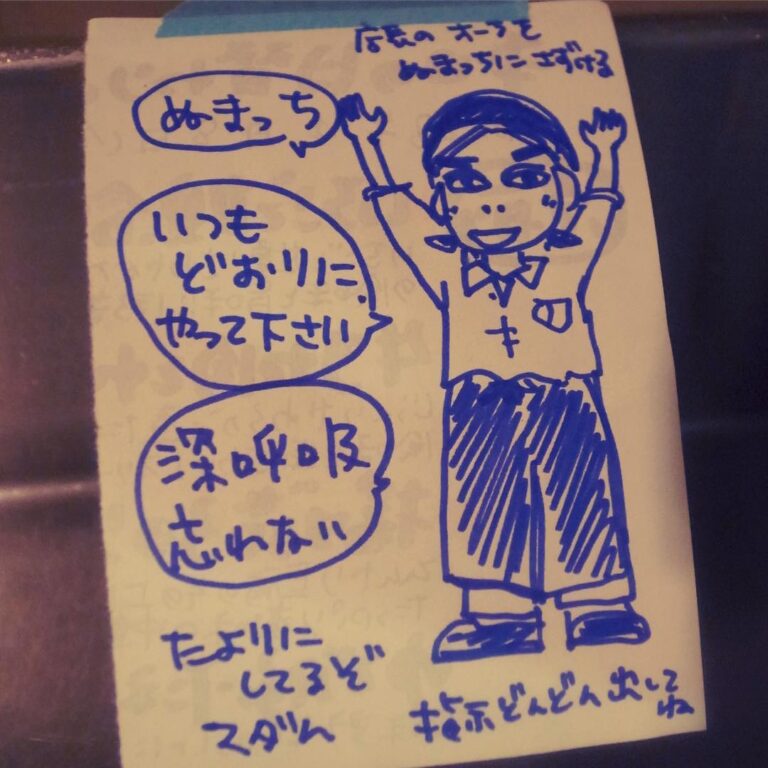 店長の オーラを
ぬまっちに さずける
ぬまっち
いつも
どおりに
やって下さい
深呼吸
忘れない
たよりに
してるぞ
マダム
指示どんどん出して
ね